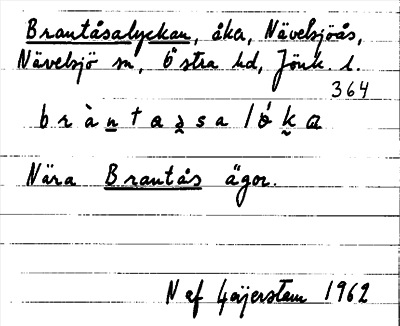 Brantåsalyckan, åka, Nävelsjöås,
Nävelsjö sn, Östra hd, Jönk. l.
364
Nära Brantås ägor.
N af Geijerstam 1962